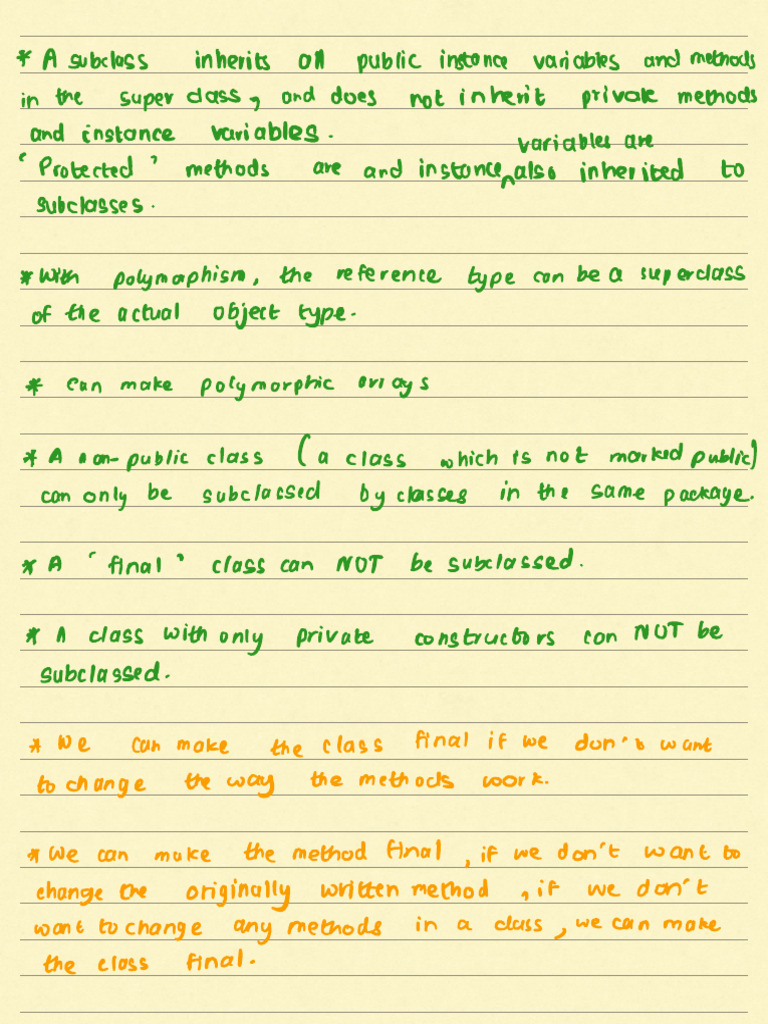 * A subclass inherits all public instance variables and methods
in the super class, and does not inherit private methods
and instance variables.
variables are
'Protected' methods are and instance ^ also inherited to
subclasses.
* With polymorphism, the reference type can be a superclass
of the actual object type.
* Can make polymorphic arrays
* A non-public class (a class which is not marked public)
can only be subclassed by classes in the same package.
* A 'final' class can NOT be subclassed.
* A class with only private constructors can NOT be
subclassed.
* We can make the class final if we don't want
to change the way the methods work.
* We can make the method final, if we don't want to
change the originally written method, if we don't
want to change any methods in a class, we can make
the class final.